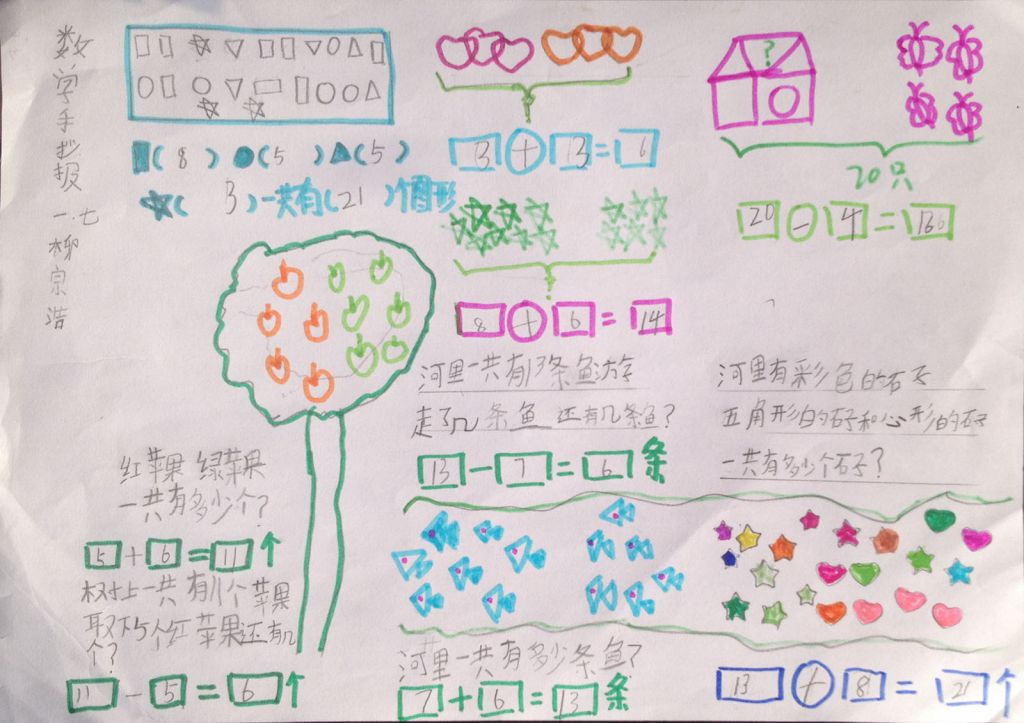 数学手抄报
一.七
柳宗浩
( 8 ) (5 ) (5 )
( 3 )一共有(21 )个图形
3 + 3 = 6
?
20只
20 - 4 = 16
8 + 6 = 14
河里一共有13条鱼游
走了几条鱼还有几条鱼?
13 - 7 = 6 条
河里有彩色的石子
五角形的石子和心形的石子
一共有多少个石子?
红苹果 绿苹果
一共有多少个?
5 + 6 = 11 个
树上一共有11个苹果
取下5个红苹果还有几
个?
11 - 5 = 6 个
河里一共有多少条鱼?
7 + 6 = 13 条
13 + 8 = 21 个